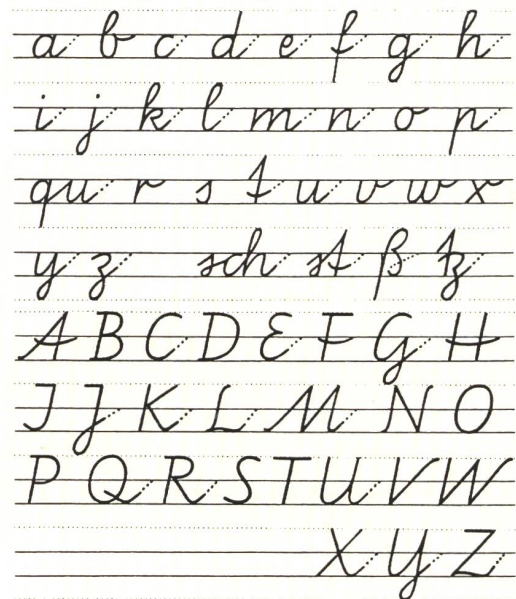 a b c d e f g h
i j k l m n o p
qu r s t u v w x
y z sch st ß tz
A B C D E F G H
I J K L M N O
P Q R S T U V W
X Y Z